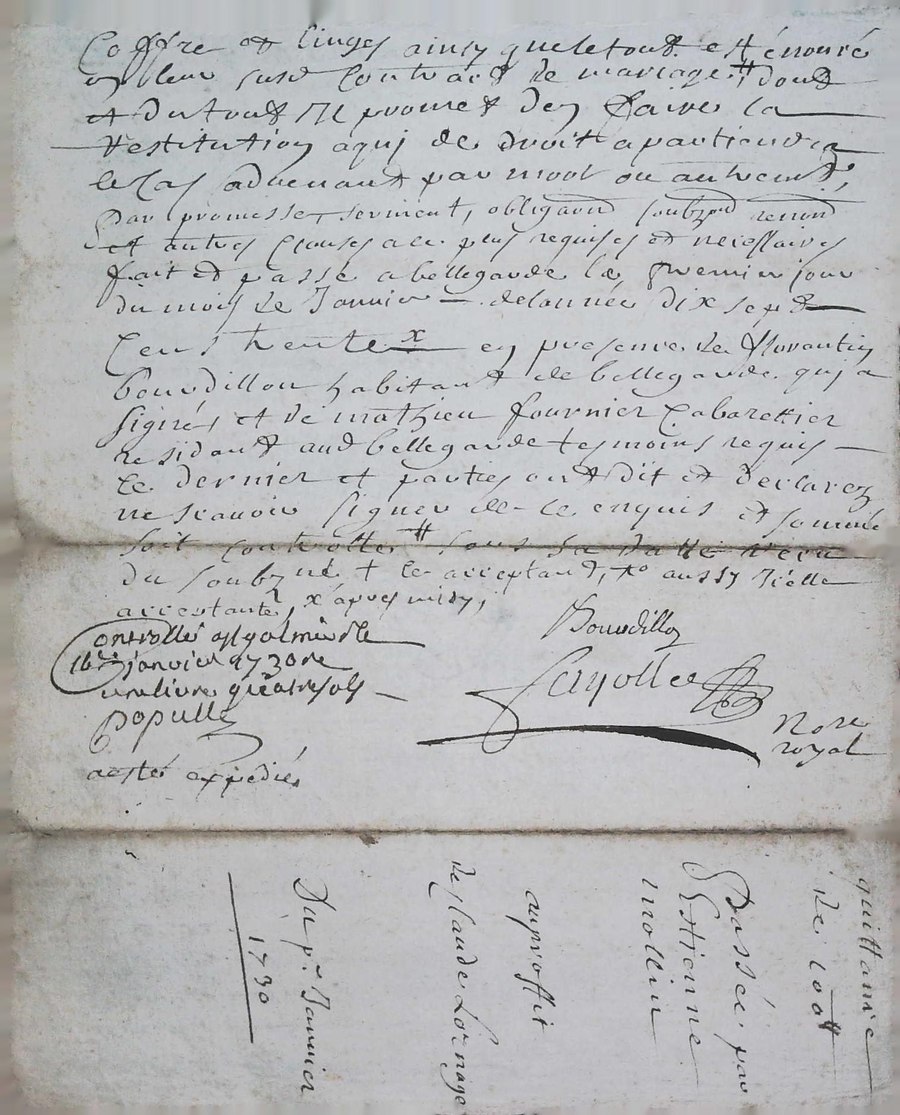 Coffre et linges ainsy que le tout est énoncé
en leur susd contract de mariage # dont
et du tout Il promet den faire la
restitution a qui de droit apartiendra
le Cas advenant par mort ou autremt,
Par promesse, serment, obligaon soubzon renon
et autres Clauses a ce plus requises et necessaires
fait et passé a bellegarde le premier jour
du mois de Janvier — de lannée dix sept
Cens trente x en presence de Florantin
bourdillon habitant de bellegarde qui a
signés et de mathieu fournier Cabarettier
residant aud bellegarde tesmoins requis —
Le dernier et parties ont dit et declarez
ne scavoir signer de ce enquis et sommé
soit controllé # sous la
du soubzné + le acceptant, aussy Icelle
acceptante, x apres midy,
Controllés a st galmier le
16e janvier 1730 re
une livre quatre sols
Populle
a estés expediés
Bourdillon
Fayolle
Nore
royal
quittance
de 100#
Passée par
Estienne
mollin
au proffit
de Claude Lornage
Du pr. Janvier
1730